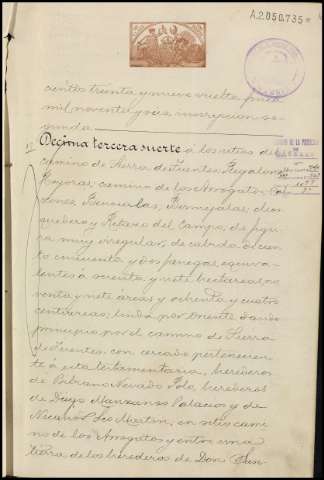 A.2.050.735
ciento treinta y nueve vuelto, finca
mil noventa y seis, inscripcion se-
gunda
Decima tercera suerte á los sitios de
camino de Sierra de Fuentes, Regalona
camino de los Arrogatos
Bermejalas;
y Retazo del Campo, de figu-
ra muy irregular, de cabida de cien-
to cincuenta y dos fanegas, equiva-
lentes á noventa y siete hectareas, no-
venta y siete áreas y ochenta y cuatro
centiáreas; linda por Oriente dando
principio por el camino de Sierra
de Fuentes, con cercado pertenecien-
te á esta testamentaria, herederos
de Nevado Polo, herederos
de Diego Manzano Palacios y de
Nicanor Martin, en su cami
no de los Arrogatos y entre una
tierra de los herederos de Don